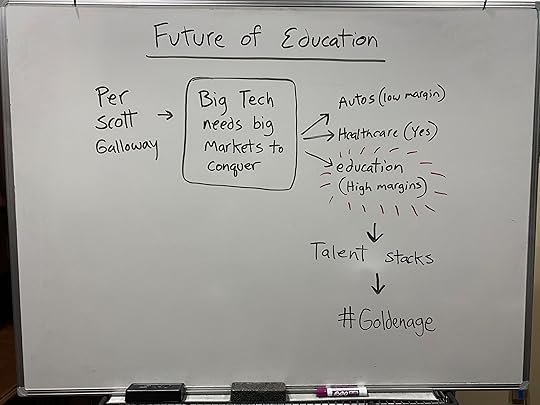 Future of Education
Per
Scott
Galloway
Big Tech
needs big
Markets to
Conquer
Autos (low margin)
Healthcare (Yes)
education
(High margins)
Talent stacks
#Goldenage
EXPO